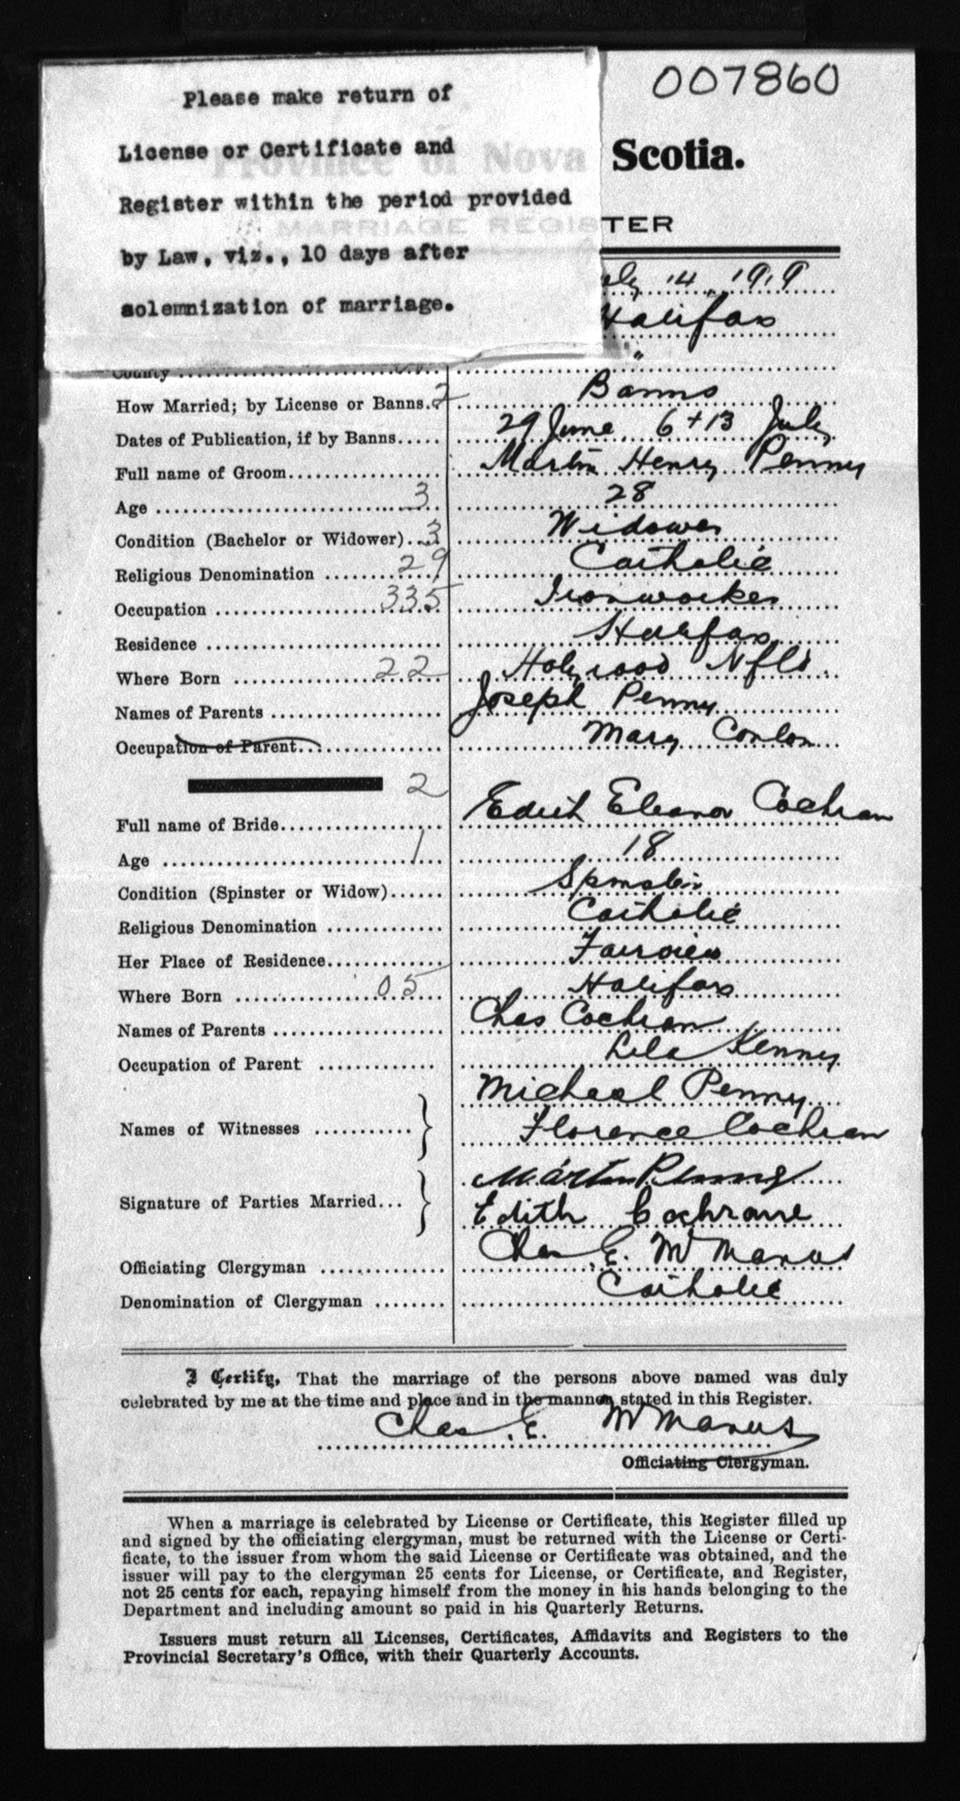 007860
Please make return of
License or Certificate and
Register within the period provided
by Law, viz., 10 days after
solemnization of marriage.
Province of Nova Scotia.
MARRIAGE REGISTER
uly 14, 1919
Halifax
County "
How Married; by License or Banns. 2 Banns
Dates of Publication, if by Banns..... 29 June 6 + 13 July
Full name of Groom Martin Henry Penny
Age 3 28
Condition (Bachelor or Widower) 3 Widower
Religious Denomination 29 Catholic
Occupation 335 Ironworker
Residence Halifax
Where Born 22 Holyrood Nfld.
Names of Parents Joseph Penny
Occupation of Parent Mary Conlon
2
Full name of Bride Edith Eleanor Cochran
Age 1 18
Condition (Spinster or Widow) Spinster
Religious Denomination Catholic
Her Place of Residence Fairview
Where Born 05 Halifax
Names of Parents Chas Cochran
Occupation of Parent Lila Kenny
Micheal Penny
Names of Witnesses Florence Cochran
Martin Penny
Signature of Parties Married... Edith Cochrane
Officiating Clergyman Chas E. McManus
Denomination of Clergyman Catholic
I Certify, That the marriage of the persons above named was duly
celebrated by me at the time and place and in the manner stated in this Register.
Chas. E. McManus
Officiating Clergyman.
When a marriage is celebrated by License or Certificate, this Register filled up
and signed by the officiating clergyman, must be returned with the License or Certi-
ficate, to the issuer from whom the said License or Certificate was obtained, and the
issuer will pay to the clergyman 25 cents for License, or Certificate, and Register,
not 25 cents for each, repaying himself from the money in his hands belonging to the
Department and including amount so paid in his Quarterly Returns.
Issuers must return all Licenses, Certificates, Affidavits and Registers to the
Provincial Secretary's Office, with their Quarterly Accounts.